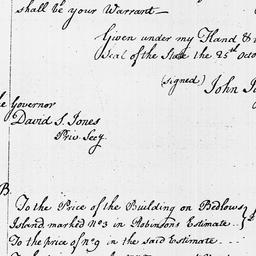 shall be your Warrant—
Given under my Hand &
Seal of the State the 25th Octo
(signed) John
he Governor
David S. Jones
Priv. Secy.
B.
To the Price of the Building on Bedlows
Island marked No 3 in Robinsons Estimate..
To the price of no 9 in the said Estimate